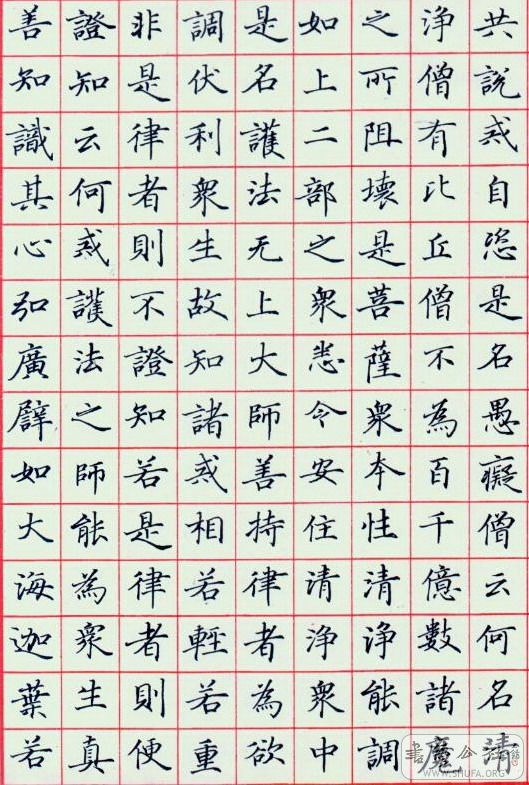 共説戒自恣是名愚癡僧云何名清
浄僧有比丘僧不為百千億數諸魔
之所阻壞是菩薩衆本性清浄能調
如上二部之衆悉令安住清浄衆中
是名護法无上大師善持律者為欲
調伏利衆生故知諸戒相若輕若重
非是律者則不證知若是律者則便
證知云何戒護法之師能為衆生真
善知識其心弘廣譬如大海迦葉若
WWW.SHUFA.ORG